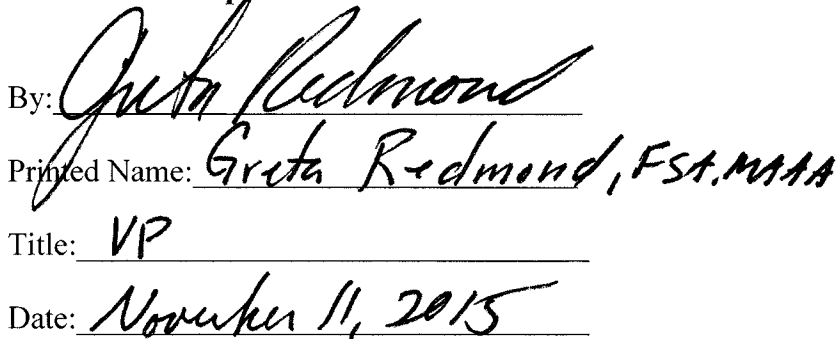 By: Greta Redmond
Printed Name: Greta Redmond, FSA, MAAA
Title: VP
Date: November 11, 2015